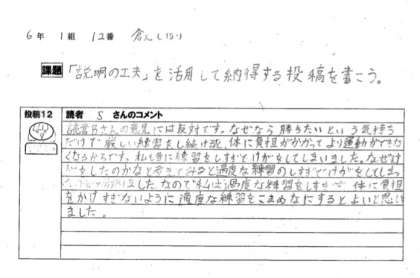 6年 1組 12番
課題 「説明の工夫」を活用して納得する投稿を書こう。
投稿12 読者 S さんのコメント
読者Bさんの意見には反対です。なぜなら勝ちたいという気持ち
だけで厳しい練習をし続け、体に負担がかかってより運動ができな
くなるからです。私も前に練習をしすぎてけがをしてしまいました。なぜけが
をしたのかなと考えてみると過度な練習のしすぎでけがをしてしまっ
ました。なので私は過度な練習をしすぎて体に負担
をかけすぎないように適度な練習をこまめなにするとよいと思い
ました。